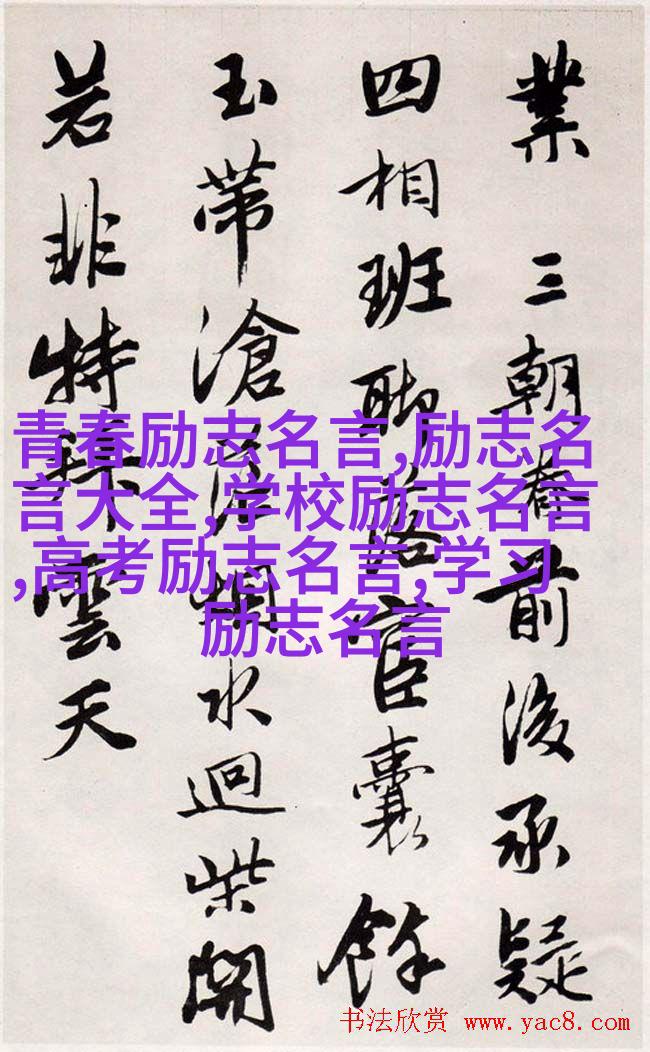 業 三朝前後承疑
四相班聊落宦囊餘
玉帶滄水迴柴關
若非特雲天
青春励志名言,励志名
言大全,学校励志名言
,高考励志名言,学习
励志名言
书法欣赏 www.yac8.com